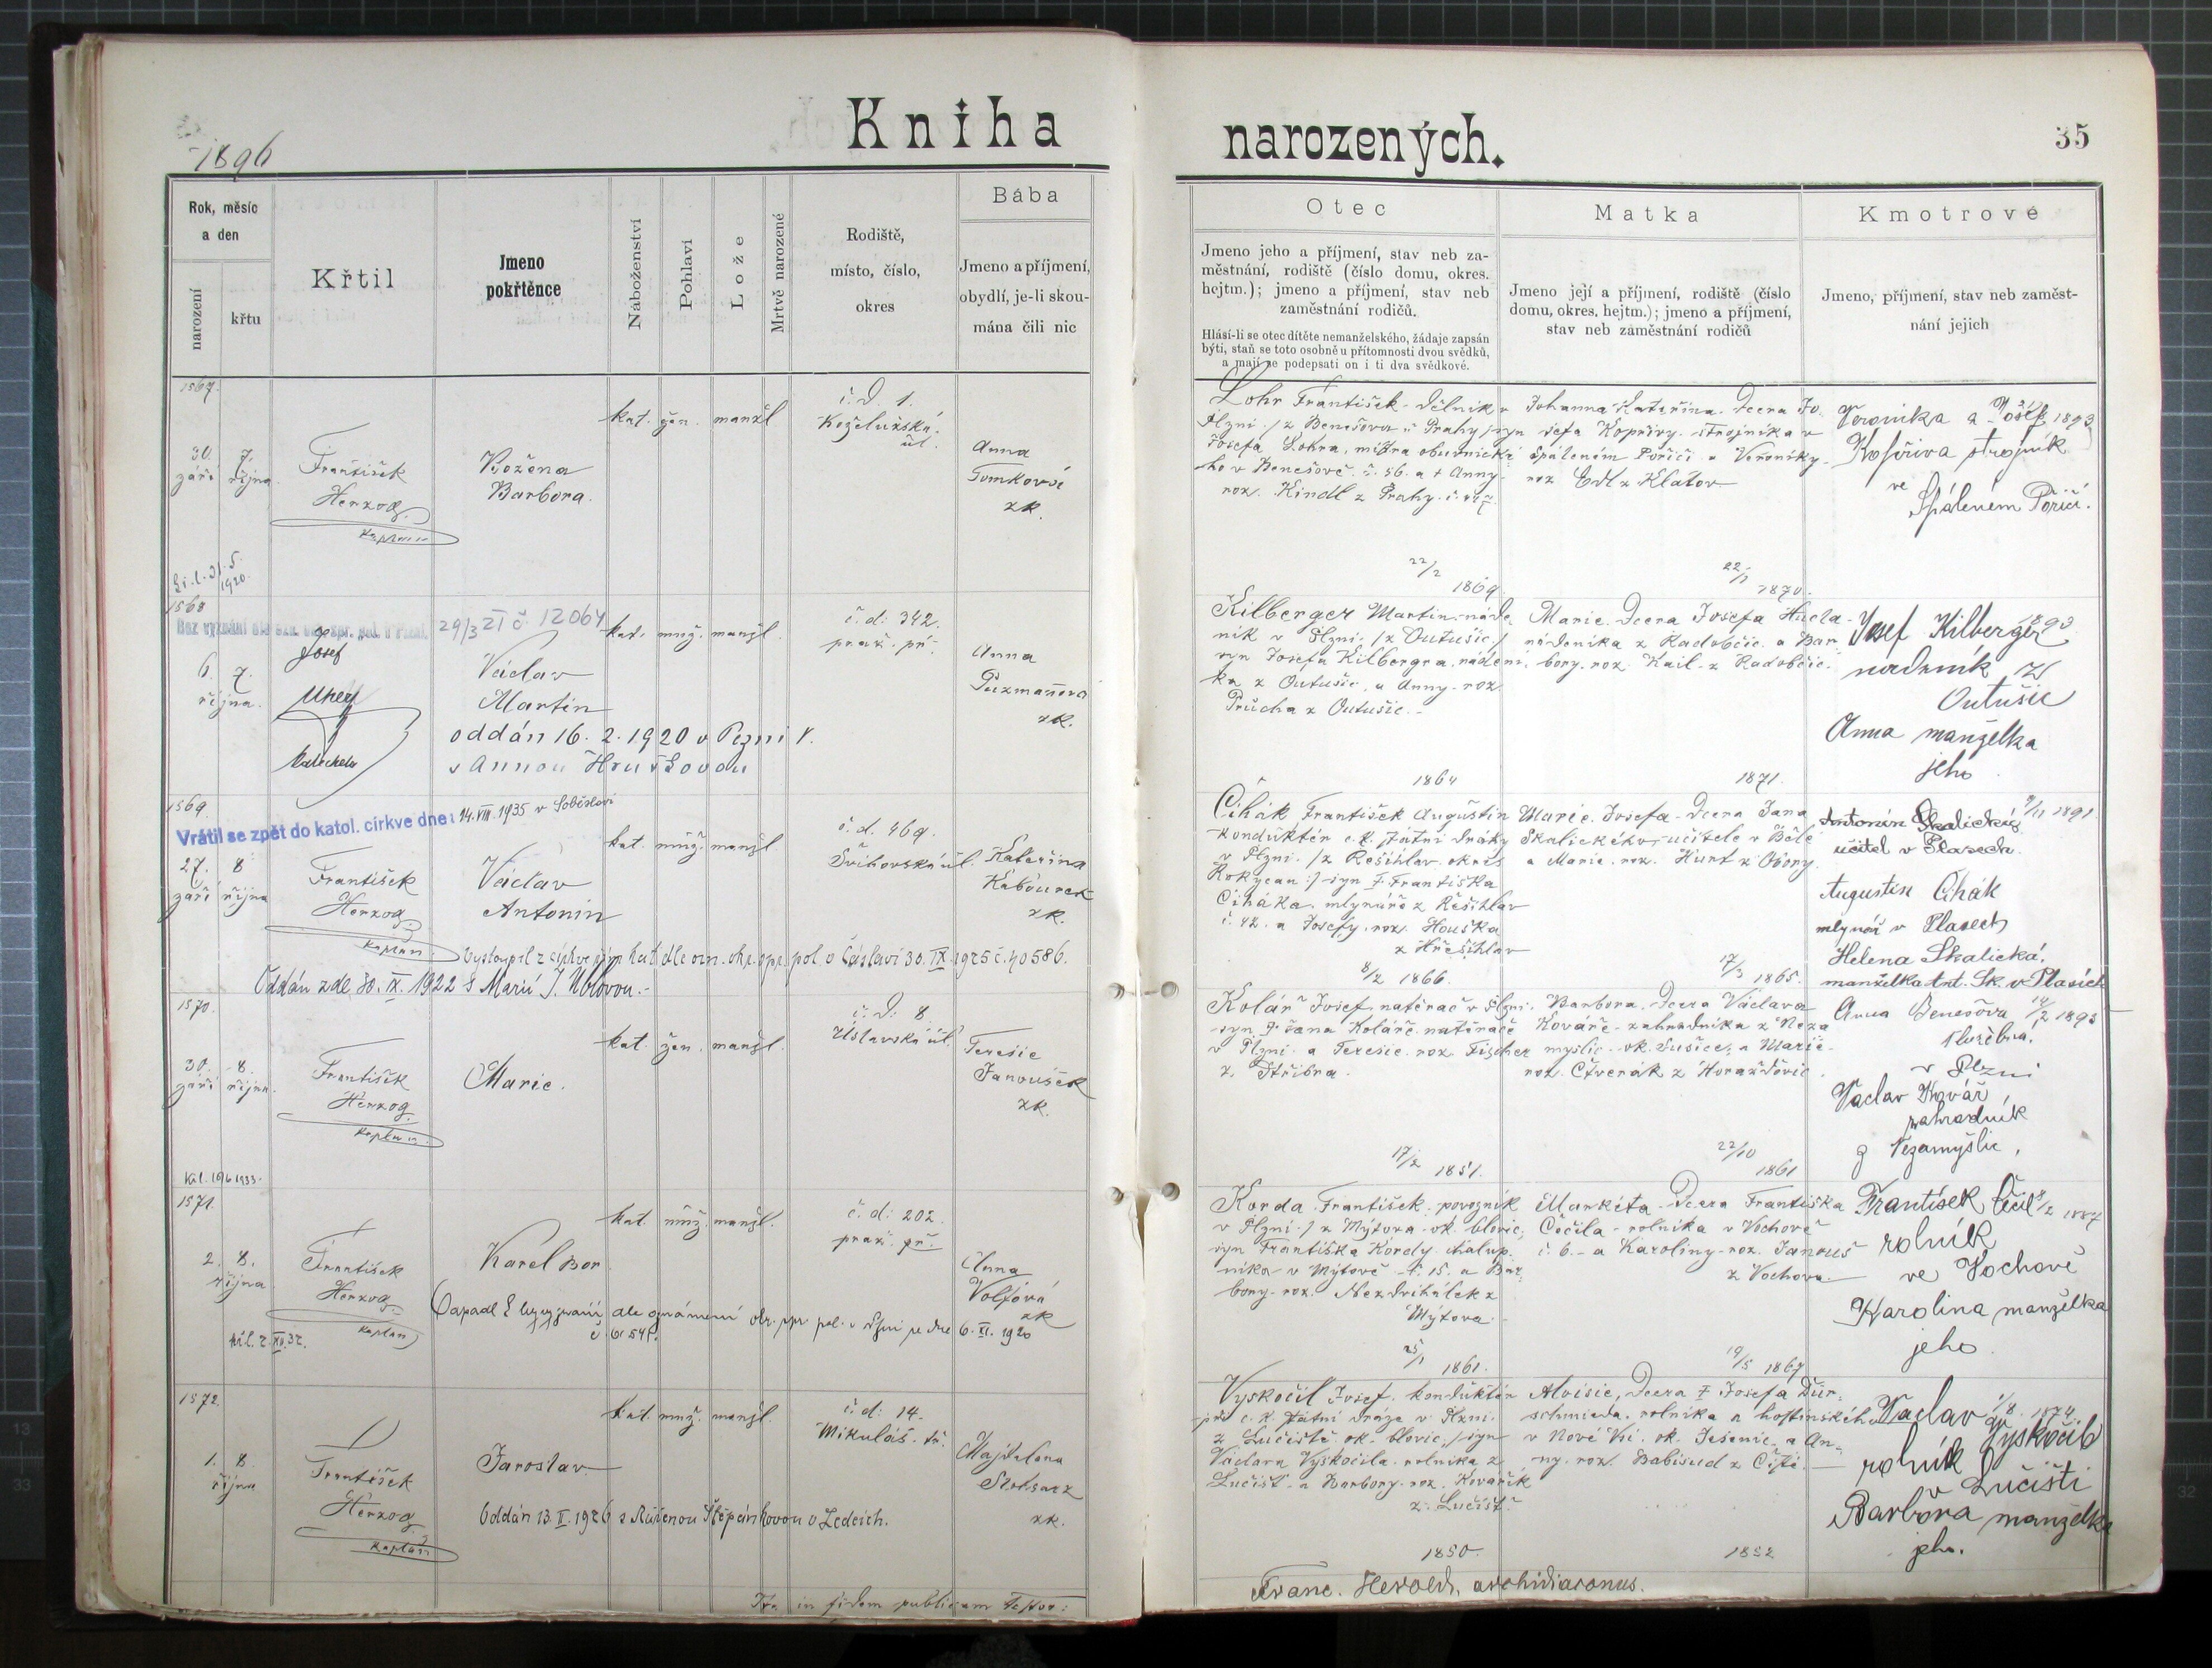 Kniha
narozených.
35
1896
Rok, měsíc
a den
narození
křtu
Křtil
Jmeno
pokřtěnce
Náboženství
Pohlaví
Lože
Mrtvě narozené
Rodiště,
místo, číslo,
okres
Bába
Jmeno a příjmení,
obydlí, je-li skou-
mána čili nic
Otec
Jmeno jeho a příjmení, stav neb za-
městnání, rodiště (číslo domu, okres.
hejtm.); jmeno a příjmení, stav neb
zaměstnání rodičů.
Hlásí-li se otec dítěte nemanželského, žádaje zapsán
býti, staň se toto osobně u přítomnosti dvou svědků,
a mají se podepsati on i ti dva svědkové.
Matka
Jmeno její a příjmení, rodiště (číslo
domu, okres. hejtm.); jmeno a příjmení,
stav neb zaměstnání rodičů
Kmotrové
Jmeno, příjmení, stav neb zaměst-
nání jejich
1567.
30. 7.
září října
František
Herzog
kaplan
Božena
Barbora.
kat. žen. manžl
č. d. 1.
Koželužská
ul.
Anna
Tomkova
zk.
Lohr František - dělník v
Plzni / z Benešova u Prahy / syn
Josefa Lohra, mistra obuvnické-
ho v Benešově č. 56. a + Anny
roz. Kindl z Prahy
22/2 1869
Johanna Kateřina. Dcera Jo-
sefa Kopřivy. strojníka v
Spáleném Poříčí a Veroniky
roz Edl z Klatov
22/1 1870.
Veronika a Josef 1893
Kopřiva strojník
ve
Spáleném Poříčí.
1568
29/3 ZI č. 12064
6. 7.
října.
Josef
Uherek
Václav
Martin
oddán 16. 2. 1920 v Plzni V.
s Annou Hruškovou
kat. muž. manžl.
č. d. 342.
praž. př.
Anna
zk.
Kilberger Martin - náde-
ník v Plzni. / z Outušic /
syn Josefa Kilbergra, nádení-
ka z Outušic, a Anny - roz.
Průcha z Outušic.
1864
Marie. Dcera Josefa Hucla
nádeníka z Radobčic. a Bar-
bory. roz. Kail z Radobčic.
1871.
Josef Kilberger
nádeník z
Outušic
Anna manželka
jeho
1569.
Vrátil se zpět do katol. církve dne: 14. VIII. 1935 v Soběslavi
27. 8
září října
František
Herzog
kaplan
Václav
Antonín
kat. muž. manžl
č. d. 469.
Švihovská ul.
Kateřina
Kabourek
zk.
Vystoupil z církve řím. kat. dle ozn. okr. spr. pol. v Čáslavi 30. IX. 1925 č. 40586.
Oddán zde 30. IX. 1922 s Marií J. Úblovou.
Cihák František Augustin
konduktér c. k. státní dráhy
v Plzni. / z Rešihlav okres
Rokycan :/ syn + Františka
Ciháka. mlynáře z Řešihlav
č. 42. a Josefy. roz. Houška
z Hřešihlav
8/2 1866.
Marie. Josefa - Dcera Jana
Skalického - učitele v Bělé
a Marie. roz. Hunt z Obory.
17/3 1865.
Antonín Skalický 1891
učitel v Plasech.
Augustin Cihák
mlynář v Plasech
Helena Skalická,
manželka Ant. Sk. v Plasích
1570.
30. 8.
září října.
František
Herzog
kaplan
Marie.
kat. žen. manžl.
č. d. 8.
Úslavská ul.
Terezie
Janoušek
zk.
Kolář Josef natěrač v Plzni.
syn + Jana Koláře. natěrače
v Plzni. a Terezie. roz. Fischer
z Stříbra.
17/2 1851.
Barbora. Dcera Václava
Kováře - zahradníka z Neza
myslic. ok. Sušice, a Marie
roz. Čtverák z Horažďovic
22/10 1861
Anna Benešova 14/2 1895
služebná,
v Plzni
Václav Kovář
zahradník
z Nezamyslic,
1571.
2. 8.
října
František
Herzog
kaplan
Karel Bor.
kat. muž. manžl.
č. d. 202.
praž. př.
Anna
Volfová
zk
Odpadl k bezvyznání, dle oznámení okr. spr. pol. v Plzni ze dne 6. XI. 1920
Korda František. povozník
v Plzni. / z Mýtova - ok. blovic,
syn Františka Kordy. chalup-
níka v Mýtově č. 15. a Bar-
bory. roz. Nezdvihálek z
Mýtova.
25/1 1861.
Markéta - Dcera Františka
Cečila - rolníka v Vochově
č. 6. - a Karoliny - roz. Janouš
z Vochova.
19/5 1867
František Čečil
rolník
ve Vochově
Karolina manželka
jeho.
1572.
1. 8.
října
František
Herzog
kaplan
Jaroslav
Oddán 13. II. 1926 s Růženou Štěpánkovou v Ledcích.
kat. muž. manžl.
č. d. 14.
Mikuláš. tř.
Majdalena
zk.
Vyskočil Josef. konduktér
při c. k. státní dráze v Plzni.
z Lučiště ok. blovic, / syn
Václava Vyskočila. rolníka z
Lučišť - a Barbory. roz. Kovařík
z Lučišť.
1850.
Aloisie, Dcera + Josefa Dür-
schmieda, rolníka a hostinského
v Nové Vsi. ok. Jesenic. a An-
ny. roz. Babisud z Čisté.
1852
Václav Vyskočil
rolník
v Lučišti
Barbora manželka
jeho.
Ita in fidem publicam testor:
Franc. Herold, archidiaconus.